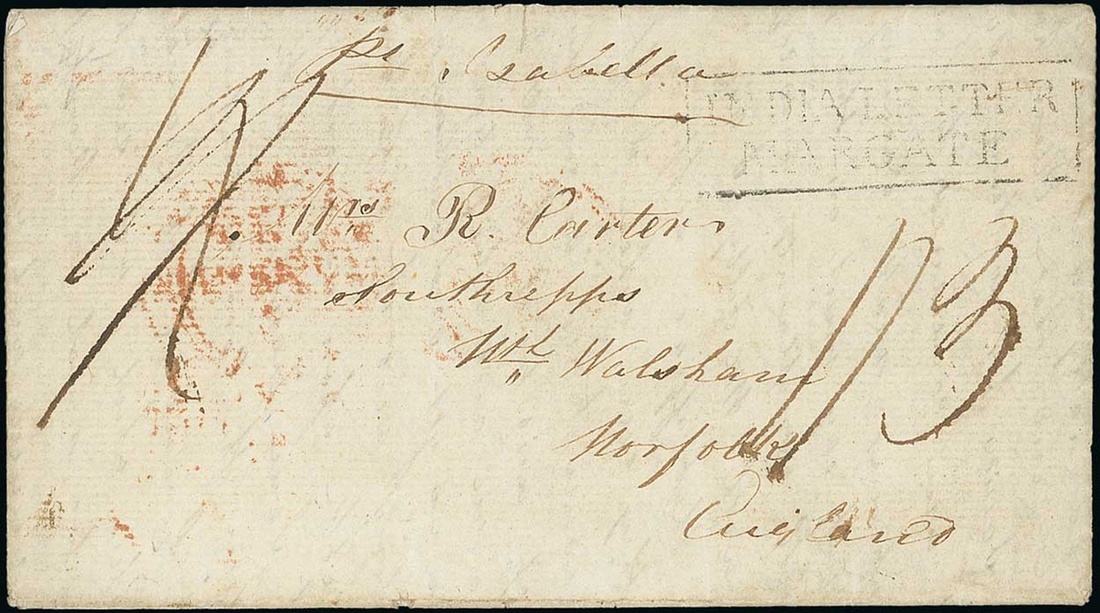 pr Isabella
INDIA LETTER
MARGATE
Mrs R. Carter
Southrepps
Nth Walsham
Norfolk
England
1/3